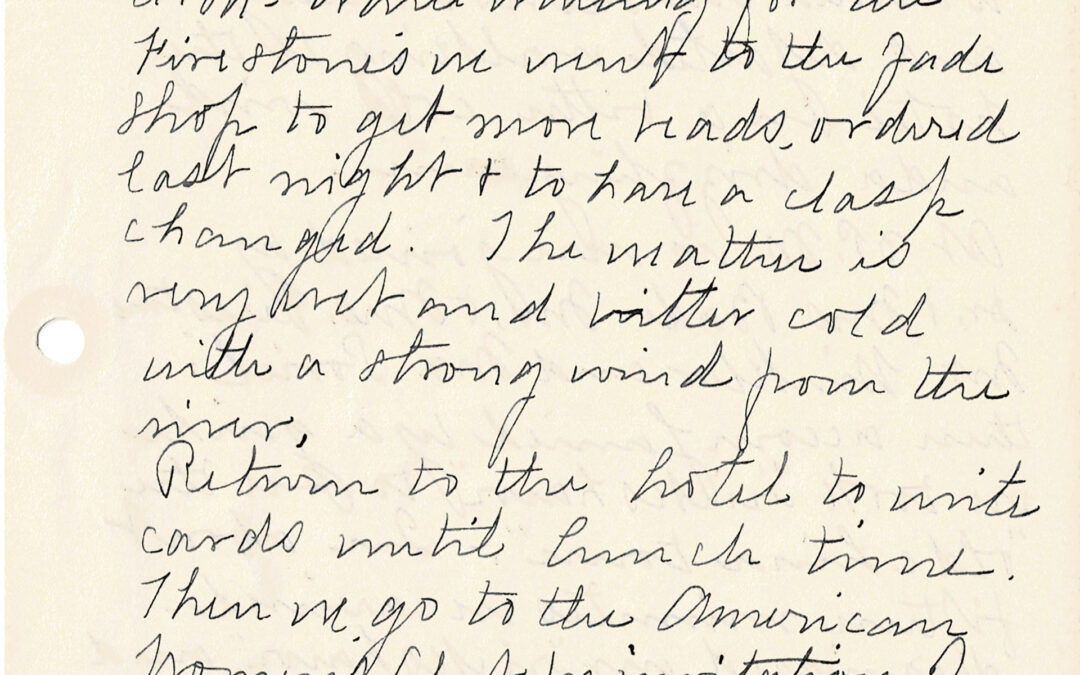 Firestones we went to the Jade
shop to get more beads, ordered
last night & to have a clasp
changed. The weather is
very wet and bitter cold
with a strong wind from the
river.
Return to the hotel to write
cards until lunch time.
Then we go to the American
invitation